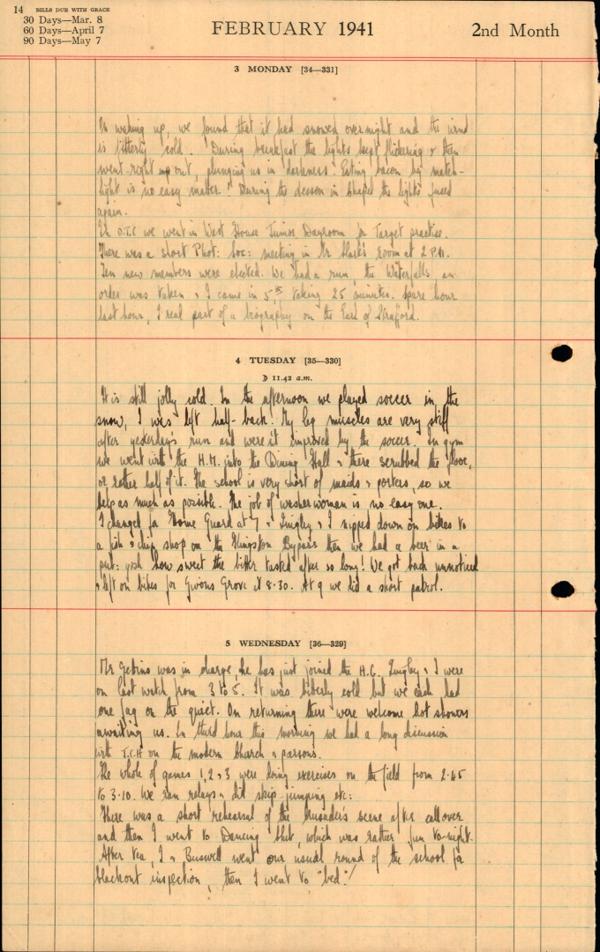 14 BILLS DUE WITH GRACE
30 Days—Mar. 8
60 Days—April 7
90 Days—May 7
FEBRUARY 1941
2nd Month
3 MONDAY [34—331]
On waking up, we found that it had snowed overnight and the wind
is bitterly cold. During breakfast the lights kept flickering & then
went right out, plunging us in darkness! Eating bacon by match-
light is no easy matter! During the lesson in the lights fused
again.
In O.T.C we went in West House Junior Dayroom for Target practice.
There was a short Phot: Soc: meeting in Mr Clark's room at 2 P.M.
Ten new members were elected. We had a run, the Waterfalls, an
order was taken & I came in 5th taking 25 minutes. Spare hour
last hour, I read part of a biography on the Earl of Strafford.
4 TUESDAY [35—330]
☽ 11.42 a.m.
It is still jolly cold. In the afternoon we played soccer in the
snow, I was left half-back. My leg muscles are very stiff
after yesterday's run and were it improved by the soccer. In gym
we went with the H.M. into the Dining Hall & there scrubbed the floor,
or rather half of it. The school is very short of maids & porters, so we
help as much as possible. The job of washerwoman is no easy one.
I changed for Home Guard at 7 & Lingley & I nipped down on bikes to
a fish & chip shop on the Kingston Bypass then we had a beer in a
pub: gosh how sweet the bitter tasted after so long! We got back unnoticed
& left on bikes for Givons Grove at 8.30. At 9 we did a short patrol.
5 WEDNESDAY [36—329]
Mr was in charge, he has just joined the H.G. Lingley & I were
on last watch from 3 to 5. It was bitterly cold but we each had
one fag on the quiet. On returning there were welcome hot showers
awaiting us. In third hour this morning we had a long discussion
with T.C.H on the modern Church & parsons.
The whole of games 1, 2 & 3 were doing exercises on the field from 2.45
to 3.10. We ran relays & did skip jumping etc:
There was a short rehearsal of the Crusader's scene after callover
and then I went to Dancing which was rather fun to-night.
After tea, I & Buswell went our usual round of the school for
blackout inspection, then I went to "bed"!